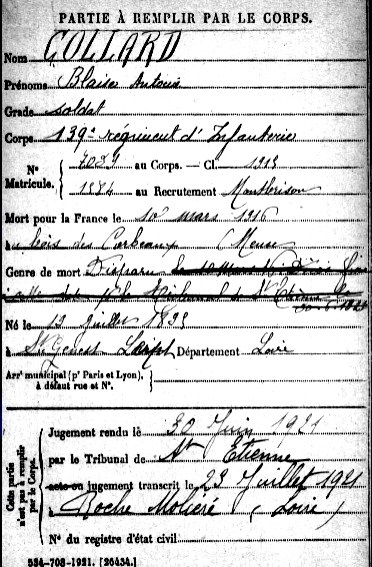 PARTIE À REMPLIR PAR LE CORPS.
Nom GOLLARD
Prénoms Blaise Antoine
Grade soldat
Corps 139e régiment d'Infanterie
N° Matricule. 7039 au Corps. — Cl. 1915
1884 au Recrutement Montbrison
Mort pour la France le 10 mars 1916
au bois des Corbeaux (Meuse
Genre de mort Disparu
Né le 12 Juillet 1895
à St Genest Lerpt Département Loire
Arrt municipal (pr Paris et Lyon), à défaut rue et N°.
Cette partie n'est pas à remplir par le Corps.
Jugement rendu le 30 Juin 1921
par le Tribunal de St Etienne
acte ou jugement transcrit le 23 Juillet 1921
à Roche Molière (Loire)
N° du registre d'état civil
534-708-1921. [26434.]